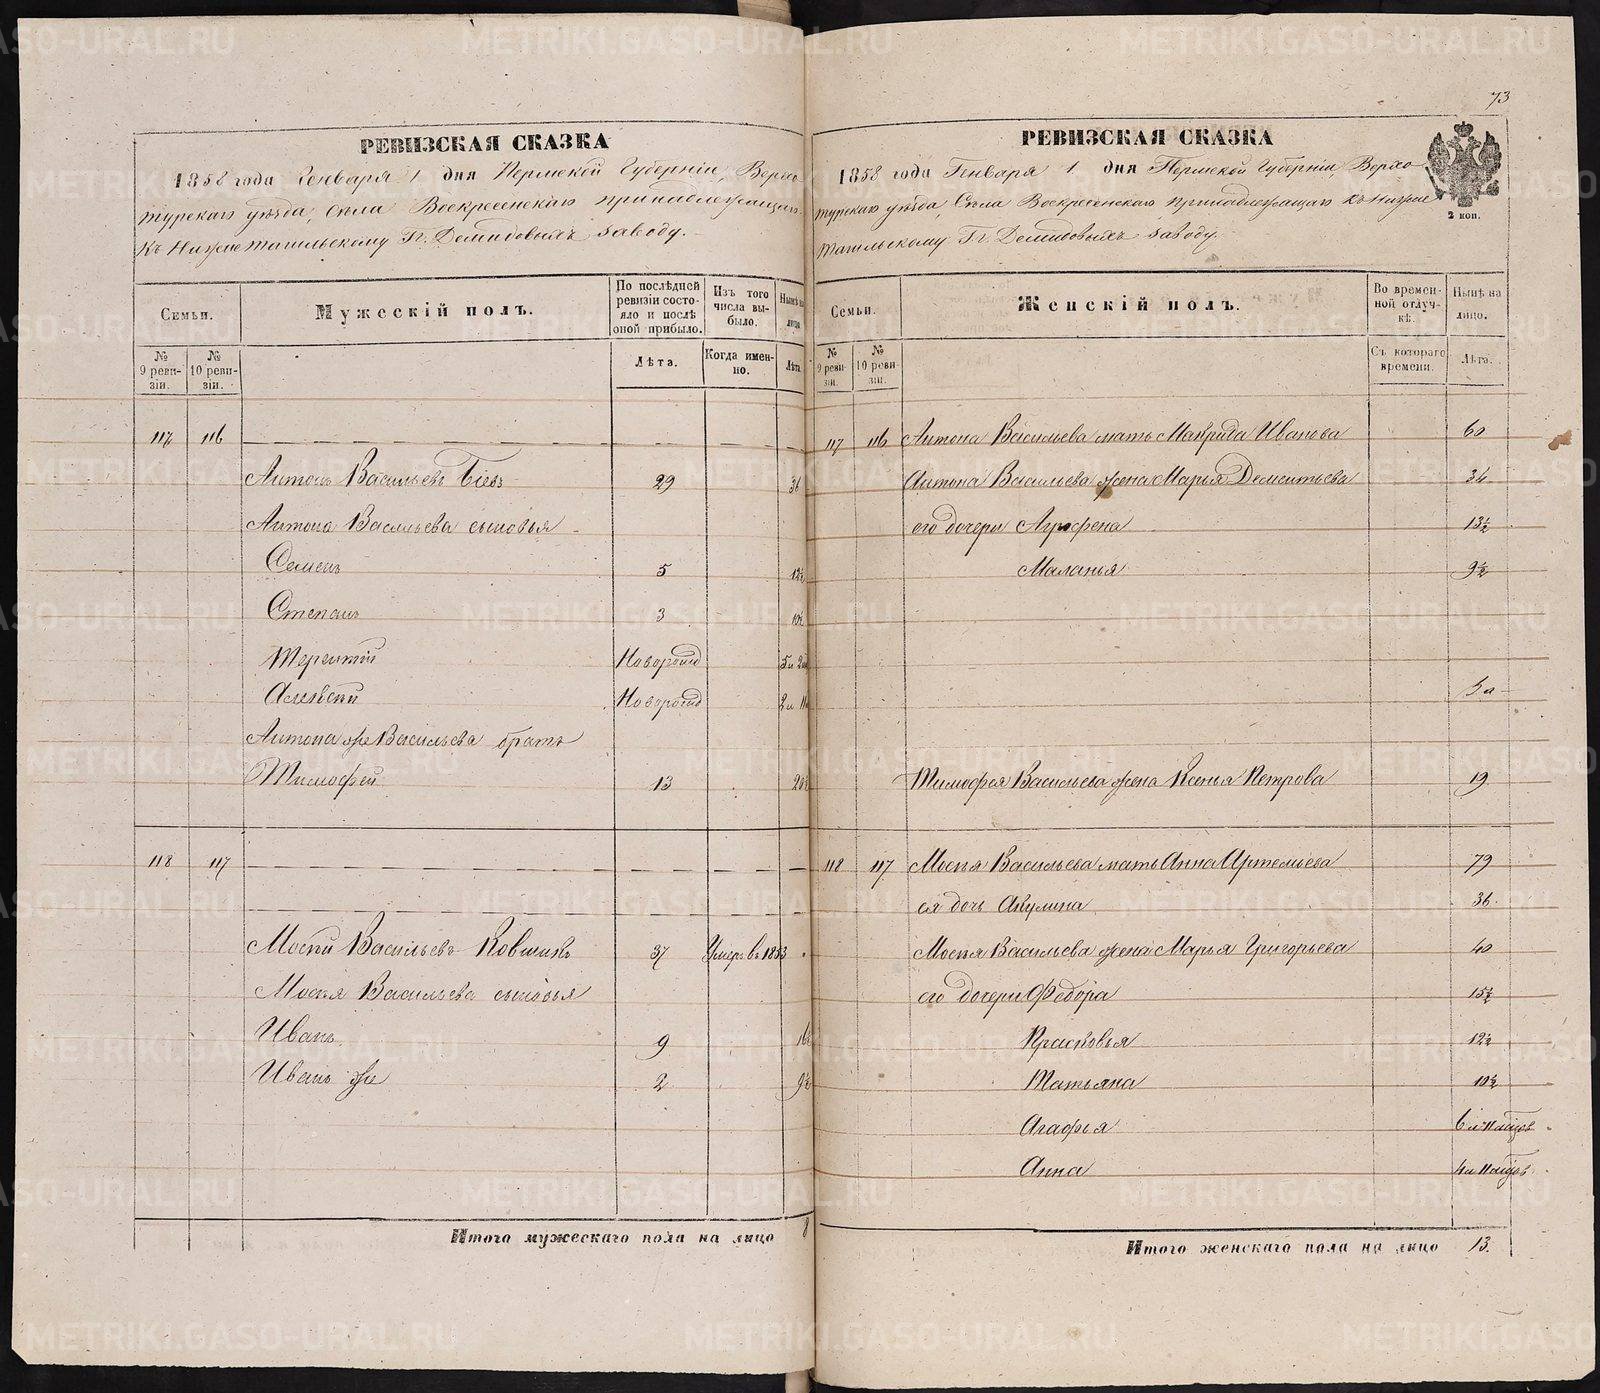 73
РЕВИЗСКАЯ СКАЗКА
1858 года Генваря 1 дня Пермской Губерніи, Верхо
турскаго уѣзда, Села Воскресенскаго принадлежащаго
Къ Нижнетагильскому Гг. Демидовыхъ заводу.
Семьи.
Мужескій полъ.
По послѣдней ревизіи состояло и послѣ оной прибыло.
Изъ того числа выбыло.
Нынѣ на лицо
№ 9 ревизіи.
№ 10 ревизіи.
Лѣта.
Когда именно.
Лѣта.
117 116
Антонъ Васильевъ 29
Антона Васильева сыновья
Семенъ 5 12½
Степанъ 3 10½
Терентій Новорожд
Алексѣй Новорожд
Антона же Васильева братъ
Тимофей 13 20½
118 117
Мосѣй Васильевъ Ковшикъ 37 Умеръ въ 1853
Мосѣя Васильева сыновья
Иванъ 9 16½
Иванъ же 2 9½
Итого мужескаго пола на лицо 8
РЕВИЗСКАЯ СКАЗКА
1858 года Генваря 1 дня Пермской Губерніи, Верхо
турскаго уѣзда, Села Воскресенскаго принадлежащаго къ Нижне
тагильскому Гг. Демидовыхъ заводу.
2 коп.
Семьи.
Женскій полъ.
Во временной отлучкѣ.
Нынѣ на лицо.
№ 9 ревизіи.
№ 10 ревизіи.
Съ котораго времени.
Лѣта.
117 116 Антона Васильева мать Маврида Иванова 60
Антона Васильева жена Марья Дементьева 34
его дочери Агрофена 13½
Маланья 9½
Тимофея Васильева жена Ксенья Петрова 19
118 117 Мосѣя Васильева мать Анна Артемьева 79
ея дочь Акулина 36
Мосѣя Васильева жена Марья Григорьева 40
его дочери Федора 15½
Прасковья 12½
Татьяна 10½
Агафья
Анна
Итого женскаго пола на лицо 13.
METRIKI.GASO-URAL.RU